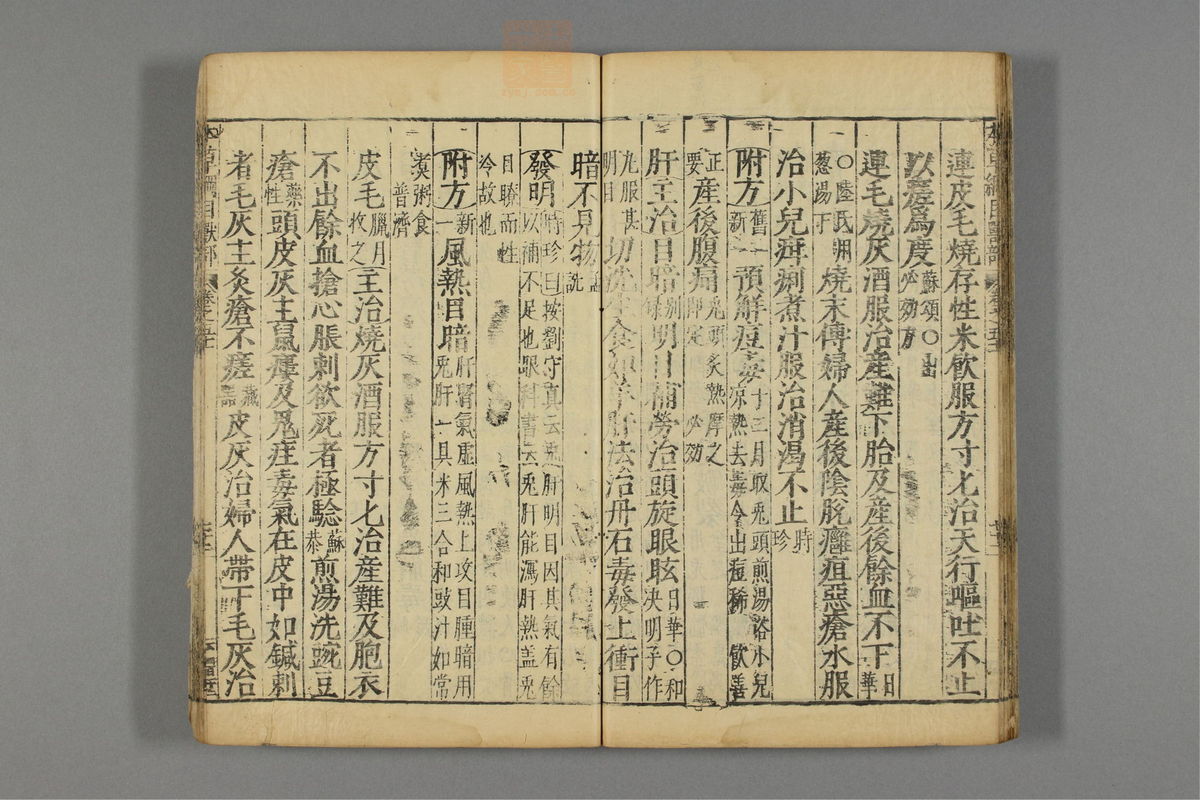 連皮毛燒存性米飲服方寸匕治天行嘔吐不止
以瘥為度蘇頌〇出必効方
連毛燒灰酒服治產難下胎及產後餘血不下日華
〇陸氏用葱湯下燒末傅婦人產後陰脫癰疽惡瘡水服
治小兒疳痢煮汁服治消渴不止時珍
附方舊一新一預解痘毒十二月取兎頭煎湯浴小兒凉熱去毒令出痘稀 飲善
正要產後腹痛兎頭炙熱摩之即定 必効
肝主治目暗别錄明目補勞治頭旋眼眩日華〇和決明子作
丸服甚明目切洗生食如羊肝法治丹石毒發上衝目
暗不見物孟詵
發明時珍曰按劉守真云兎肝明目因其氣有餘以補不足也眼科書云兎肝能瀉肝熱盖兎
目瞭而性冷故也
附方新一風熱目暗肝腎氣虛風熱上攻目腫暗用兎肝一具米三合和豉汁如常
煑粥食普濟
皮毛臘月收之主治燒灰酒服方寸匕治產難及胞衣
不出餘血搶心脹刺欲死者極驗蘇恭煎湯洗豌豆
瘡藥性頭皮灰主鼠瘻及鬼疰毒氣在皮中如鍼刺
者毛灰主灸瘡不瘥藏器皮灰治婦人帶下毛灰治